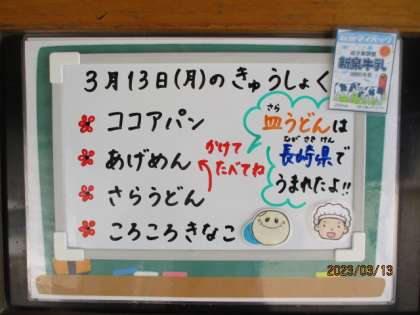 3月13日(月)のきゅうしょく
ココアパン
あげめん
さらうどん
ころころきなこ
かけて
たべてね
さら
皿うどんは
ながさきけん
長崎県で
うまれたよ!!
新泉牛乳
2023/03/13